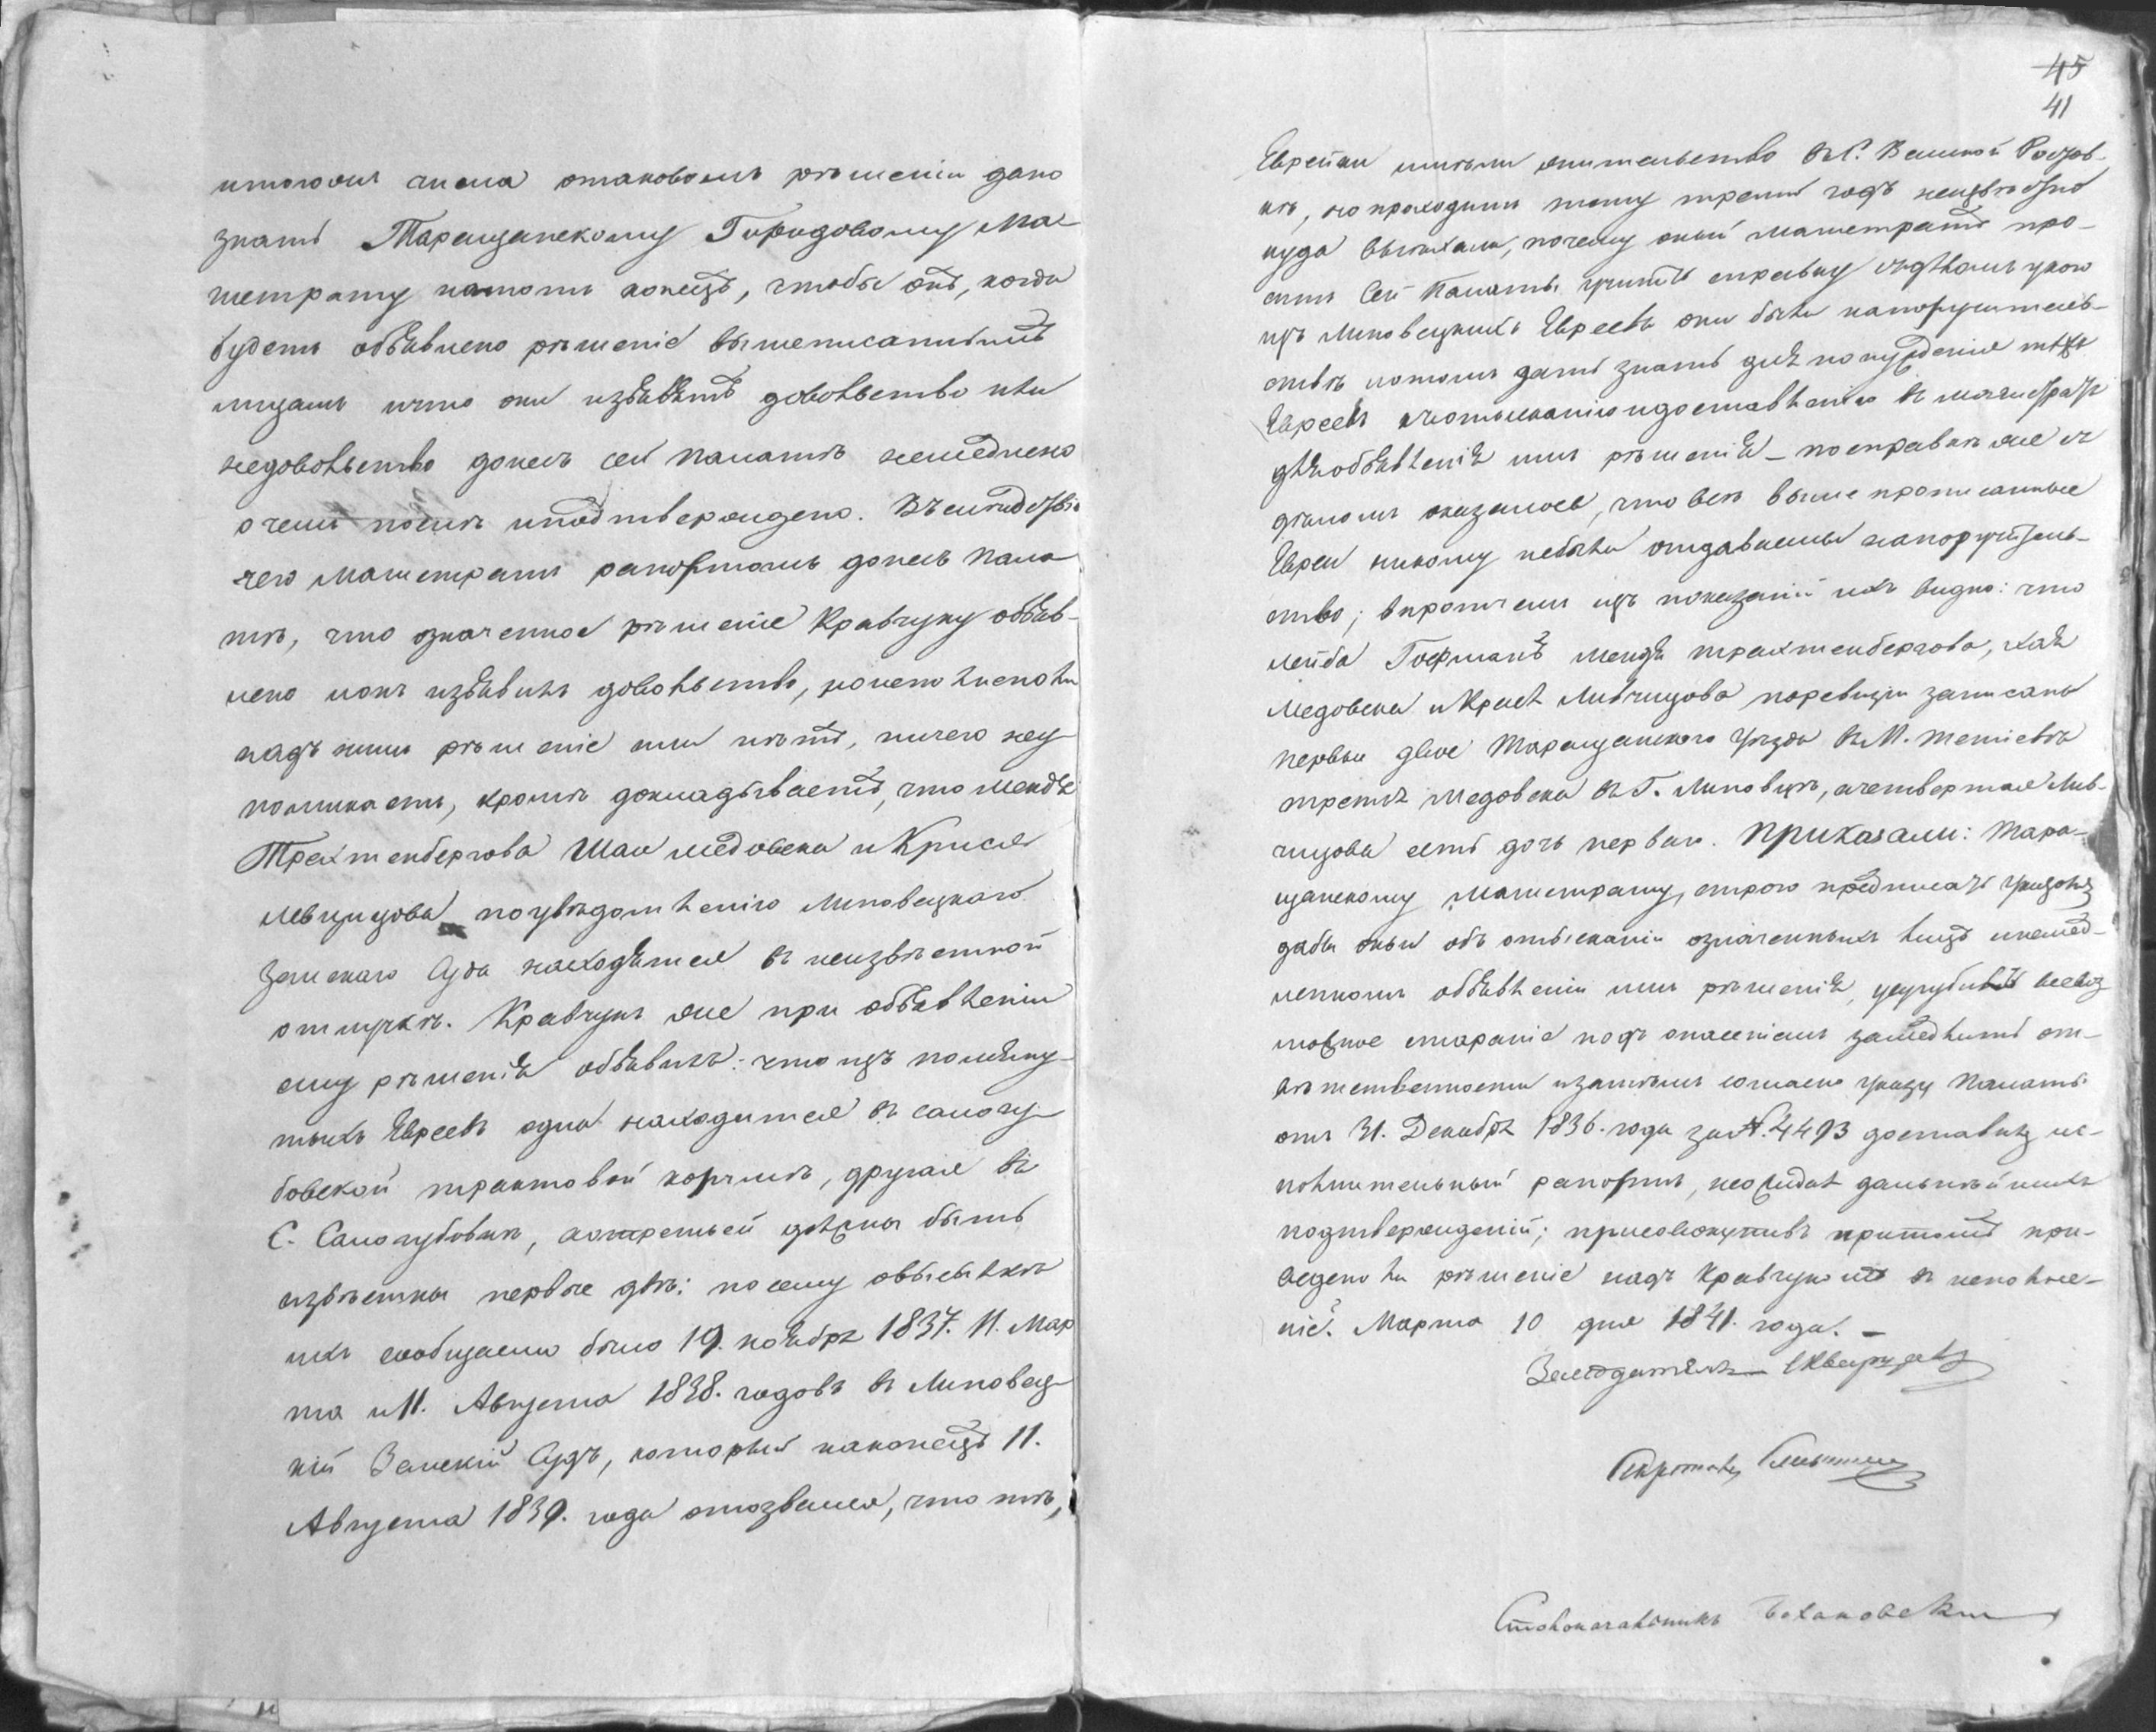 итогожъ числа отаковомъ рѣшеніи дано
знать Таращанскому Городовому Ма
гистрату натотъ конецъ, чтобы онъ, когда
будетъ объявлено рѣшеніе вышеписаннымъ
лицамъ ичто они изъявятъ довольство или
недовольство донесъ сей палатѣ немедленно
о чемъ послѣ иподтверждено. Въ
чего Магистратъ рапортомъ донесъ Пала
тѣ, что означенное рѣшеніе Кравчуку объяв-
лено ионъ изъявилъ довольство, ноисполнено ли
надъ нимъ рѣшеніе или нѣтъ, ничего неу
поминаетъ, кромѣ докладываетъ, что Мендя
Трахтенбергова Шая Медовска и Крися
Левчицова поувѣдомленію Липовецкаго
Земскаго Суда находятся въ неизвѣстной
отлучкѣ. Кравчукъ же при объявленіи
ему рѣшенія объявилъ: что изъ помяну-
тыхъ Евреевъ одна находится въ самогу-
бовской трактовой корчмѣ, другая въ
С. Самогубовкѣ, аотретьей должны быть
извѣстны первые двѣ: посему овысылкѣ
ихъ сообщаемо было 19. ноября 1837. 11. Мар
та и 11. Августа 1838. годовъ въ Липовец
кій Земскій Судъ, который наконецъ 11.
Августа 1839. года отозвался, что тѣ,
45
41
Еврейки имѣли жительство въ С. Великой Ростов-
кѣ, но проходитъ тому третій годъ неизвѣстно
куда выѣхали, почему оный Магистратъ про-
ситъ Сей Палаты учинить справку съдѣломъ укого
изъ Липовецкихъ Евреевъ они были напоручитель-
ствѣ ипотомъ дать знать для понужденія тѣхъ
Евреевъ котысканію идоставленію въ магистратъ
дляобъявленія имъ рѣшенія – посправкѣ же съ
дѣломъ оказалось, что всѣ выше прописанные
Евреи никому небыли отдаваемы напоручитель-
ство; впрочемъ изъ показаній ихъ видно: что
Лейба Гофманъ Мендя Трахтенбергова,
Медовска и Крися Ливчицова поревизіи записаны
первыи двое Таращанскаго Уѣзда въ М. Тетіевѣ
третья Медовска въ Г. Липовцѣ, ачетвертая Лив-
чицова есть дочь первыи. Приказали: Тара-
щанскому Магистрату, строго предписать указомъ
дабы оный объ отысканіи означенныхъ лицъ инемед-
ленномъ объявленіи имъ рѣшенія, усугубивъ всевоз
можное стараніе подъ опасеніемъ замедлить от-
вѣтственности изатѣмъ согласно указу Палаты
отъ 31. Декабря 1836. года за № 4493 доставилъ ис-
полнительный рапортъ, неожидая дальнѣйшихъ
подтвержденій; присовокупивъ притомъ при-
ведено ли рѣшеніе надъ Кравчукомъ въ исполне-
ніе. Марта 10 дня 1841. года. –
Засѣдатель
Секретарь
Столоначальникъ